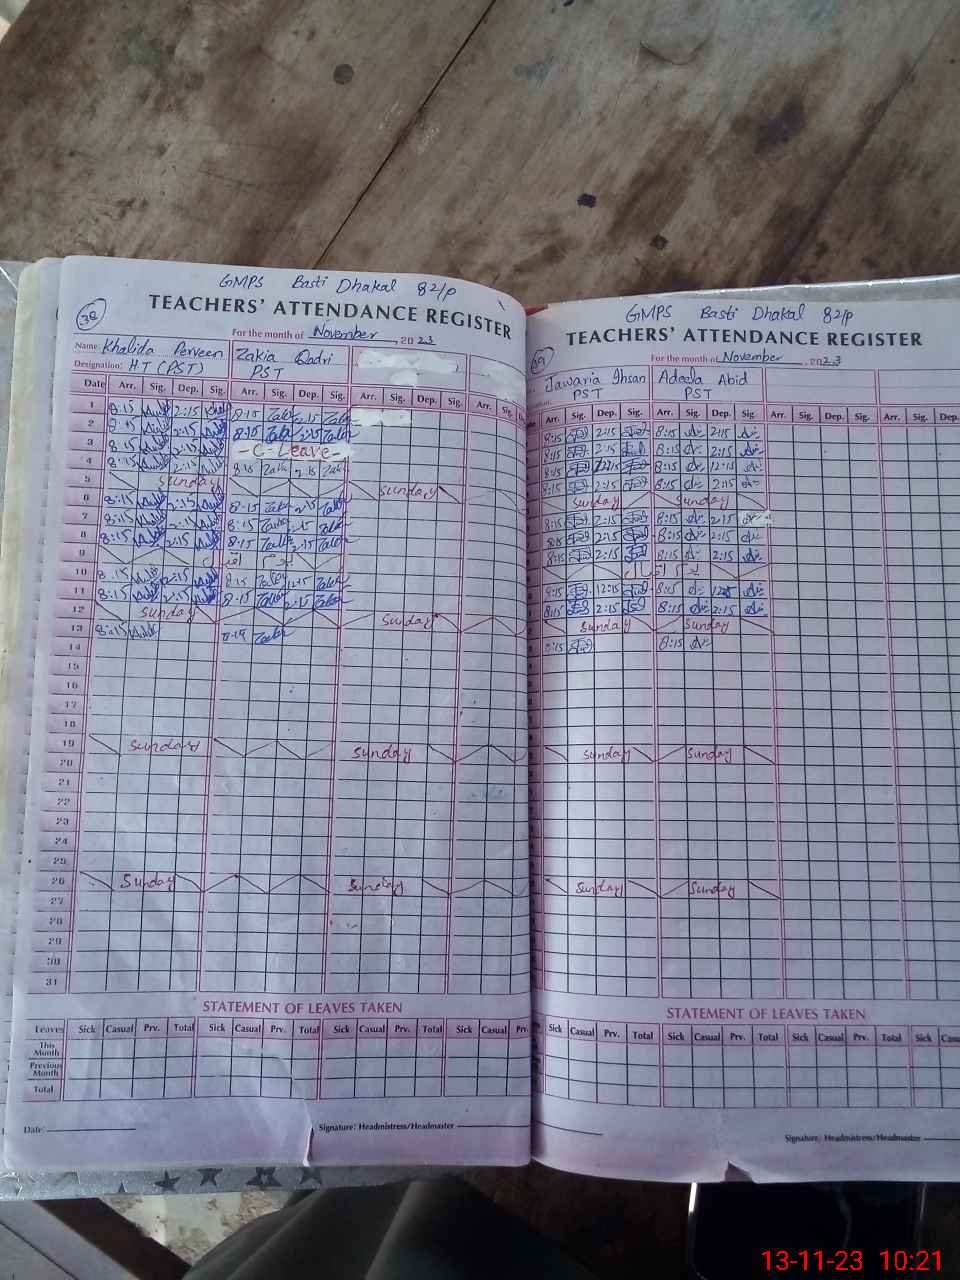 GMPS Basti Dhakal 82/P
TEACHERS' ATTENDANCE REGISTER
38
For the month of November, 2023
Name: Khalida Perveen Zakia Qadri
Designation: HT (PST) PST
Date Arr. Sig. Dep. Sig. Arr. Sig. Dep. Sig. Arr. Sig. Dep. Sig. Arr. Sig.
1 8:15 2:15 8:15 2:15
2 8:15 2:15 8:15 2:15
3 8:15 2:15 - C-Leave -
4 8:15 2:15 8:15 2:15
5 Sunday Sunday
6 8:15 2:15 8:15 2:15
7 8:15 2:15 8:15 2:15
8 8:15 2:15 8:15 2:15
9
10 8:15 2:15 8:15
11 8:15 2:15 8:15 2:15
12 Sunday Sunday
13 8:15
14
15
16
17
18
19 Sunday Sunday
20
21
22
23
24
25
26 Sunday Sunday
27
28
29
30
31
STATEMENT OF LEAVES TAKEN
Leaves Sick Casual Prv. Total Sick Casual Prv. Total Sick Casual Prv. Total Sick Casual Prv.
This Month
Previous Month
Total
Date:
Signature: Headmistress/Headmaster
GMPS Basti Dhakal 82/P
TEACHERS' ATTENDANCE REGISTER
For the month of November, 2023
Jawaria Ihsan Adeela Abid
PST PST
Arr. Sig. Dep. Sig. Arr. Sig. Dep. Sig. Arr. Sig. Dep. Sig. Arr. Sig. Dep.
8:15 2:15 8:15 2:15
8:15 2:15 8:15 2:15
8:15 12:15 8:15 12:15
8:15 2:15 8:15 2:15
Sunday Sunday
8:15 2:15 8:15 2:15
8:15 2:15 8:15 2:15
8:15 2:15 8:15 2:15
8:15 12:15 8:15
8:15 2:15 8:15 2:15
Sunday Sunday
8:15 8:15
Sunday Sunday
Sunday Sunday
STATEMENT OF LEAVES TAKEN
Sick Casual Prv. Total Sick Casual Prv. Total Sick Casual Prv. Total Sick
Signature: Headmistress/Headmaster
13-11-23 10:21